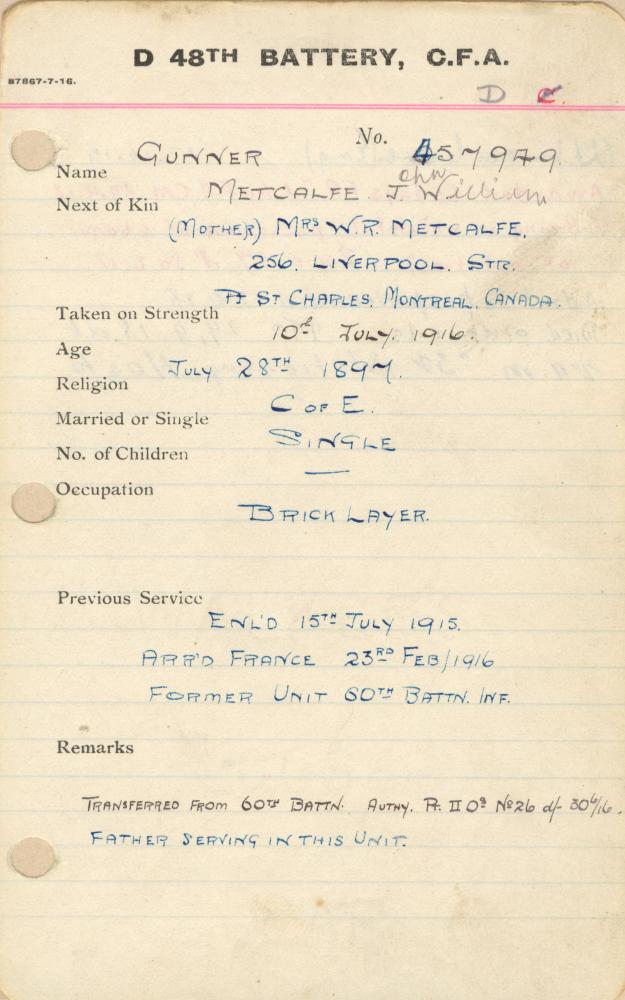 D 48TH BATTERY, C.F.A.
B7867-7-16.
D C.
No. 457949
Name GUNNER
METCALFE J. ohn William
Next of Kin
(MOTHER) MRS W.R. METCALFE.
256. LIVERPOOL. STR.
PT ST CHARLES, MONTREAL, CANADA.
Taken on Strength
10th JULY. 1916.
Age
JULY 28TH 1897.
Religion
C OF E.
Married or Single
SINGLE
No. of Children
—
Occupation
BRICK LAYER.
Previous Service
ENL'D 15TH JULY 1915.
ARR'D FRANCE 23RD FEB/1916
FORMER UNIT 60TH BATTN. INF.
Remarks
TRANSFERRED FROM 60TH BATTN. AUTHY. Pt. II Os No 26 d/- 30/6/16.
FATHER SERVING IN THIS UNIT.